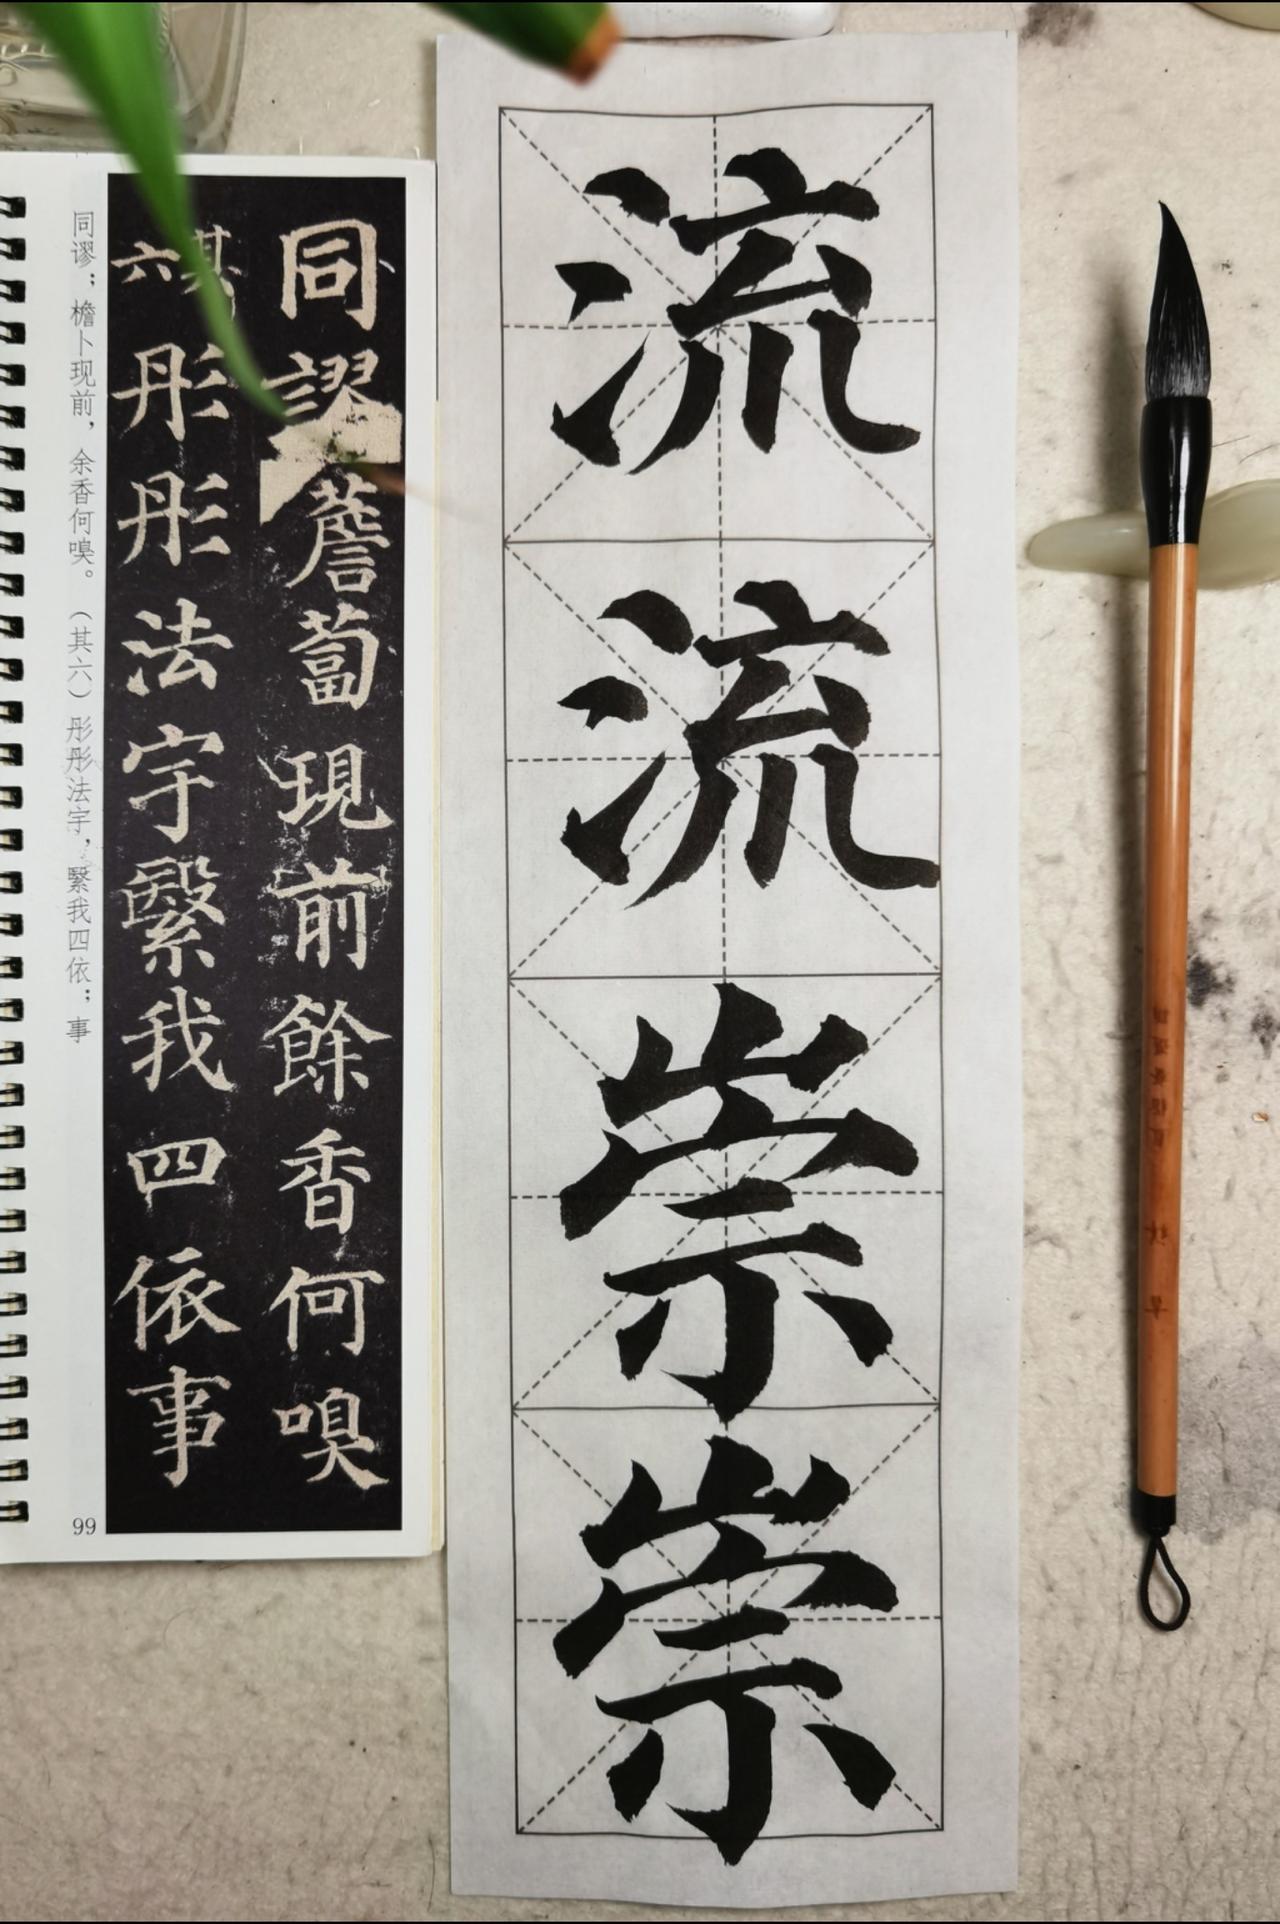 流流崇崇
同謬薝蔔現前餘香何嗅
其六
彤彤法宇繄我四依事
同谬；檐卜现前，余香何嗅。（其六）彤彤法宇，繄我四依；事
99